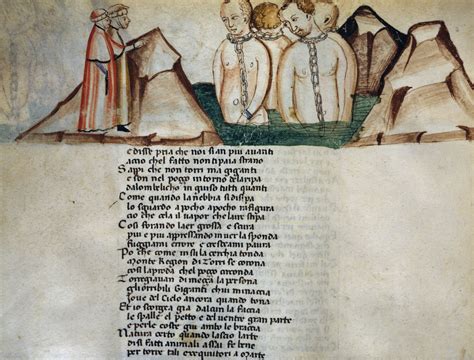 e disse pria che noi sian piu avanti
acio chel fatto non ti paia strano
Sapi che non torri ma giganti
e son nel poço intorno dela ripa
dalombelicho in giuso tutti quanti
Como quando la nebbia si disipa
lo sguardo a pocho apocho rafigura
cio che cela il uapor che laire stipa
Cosi forando laer grossa e scura
piu e piu appressando inuer la sponda
fuggiami errore e crescemi paura
Po che come insula cerchia tonda
Monte Region di Torri se corona
cosi laproda chel poço circonda
Torregiauan di meça la persona
gliorribili Giganti chui minaccia
Joue del Cielo ancora quando tona
Et io scorgea gia dalcun la faccia
le spalle el petto e del uentre gran parte
e perle coste giu amto le braccia
Natura certo quando lascio larte
di si fatti animali assai fe bene
per torre tali exequitori a marte